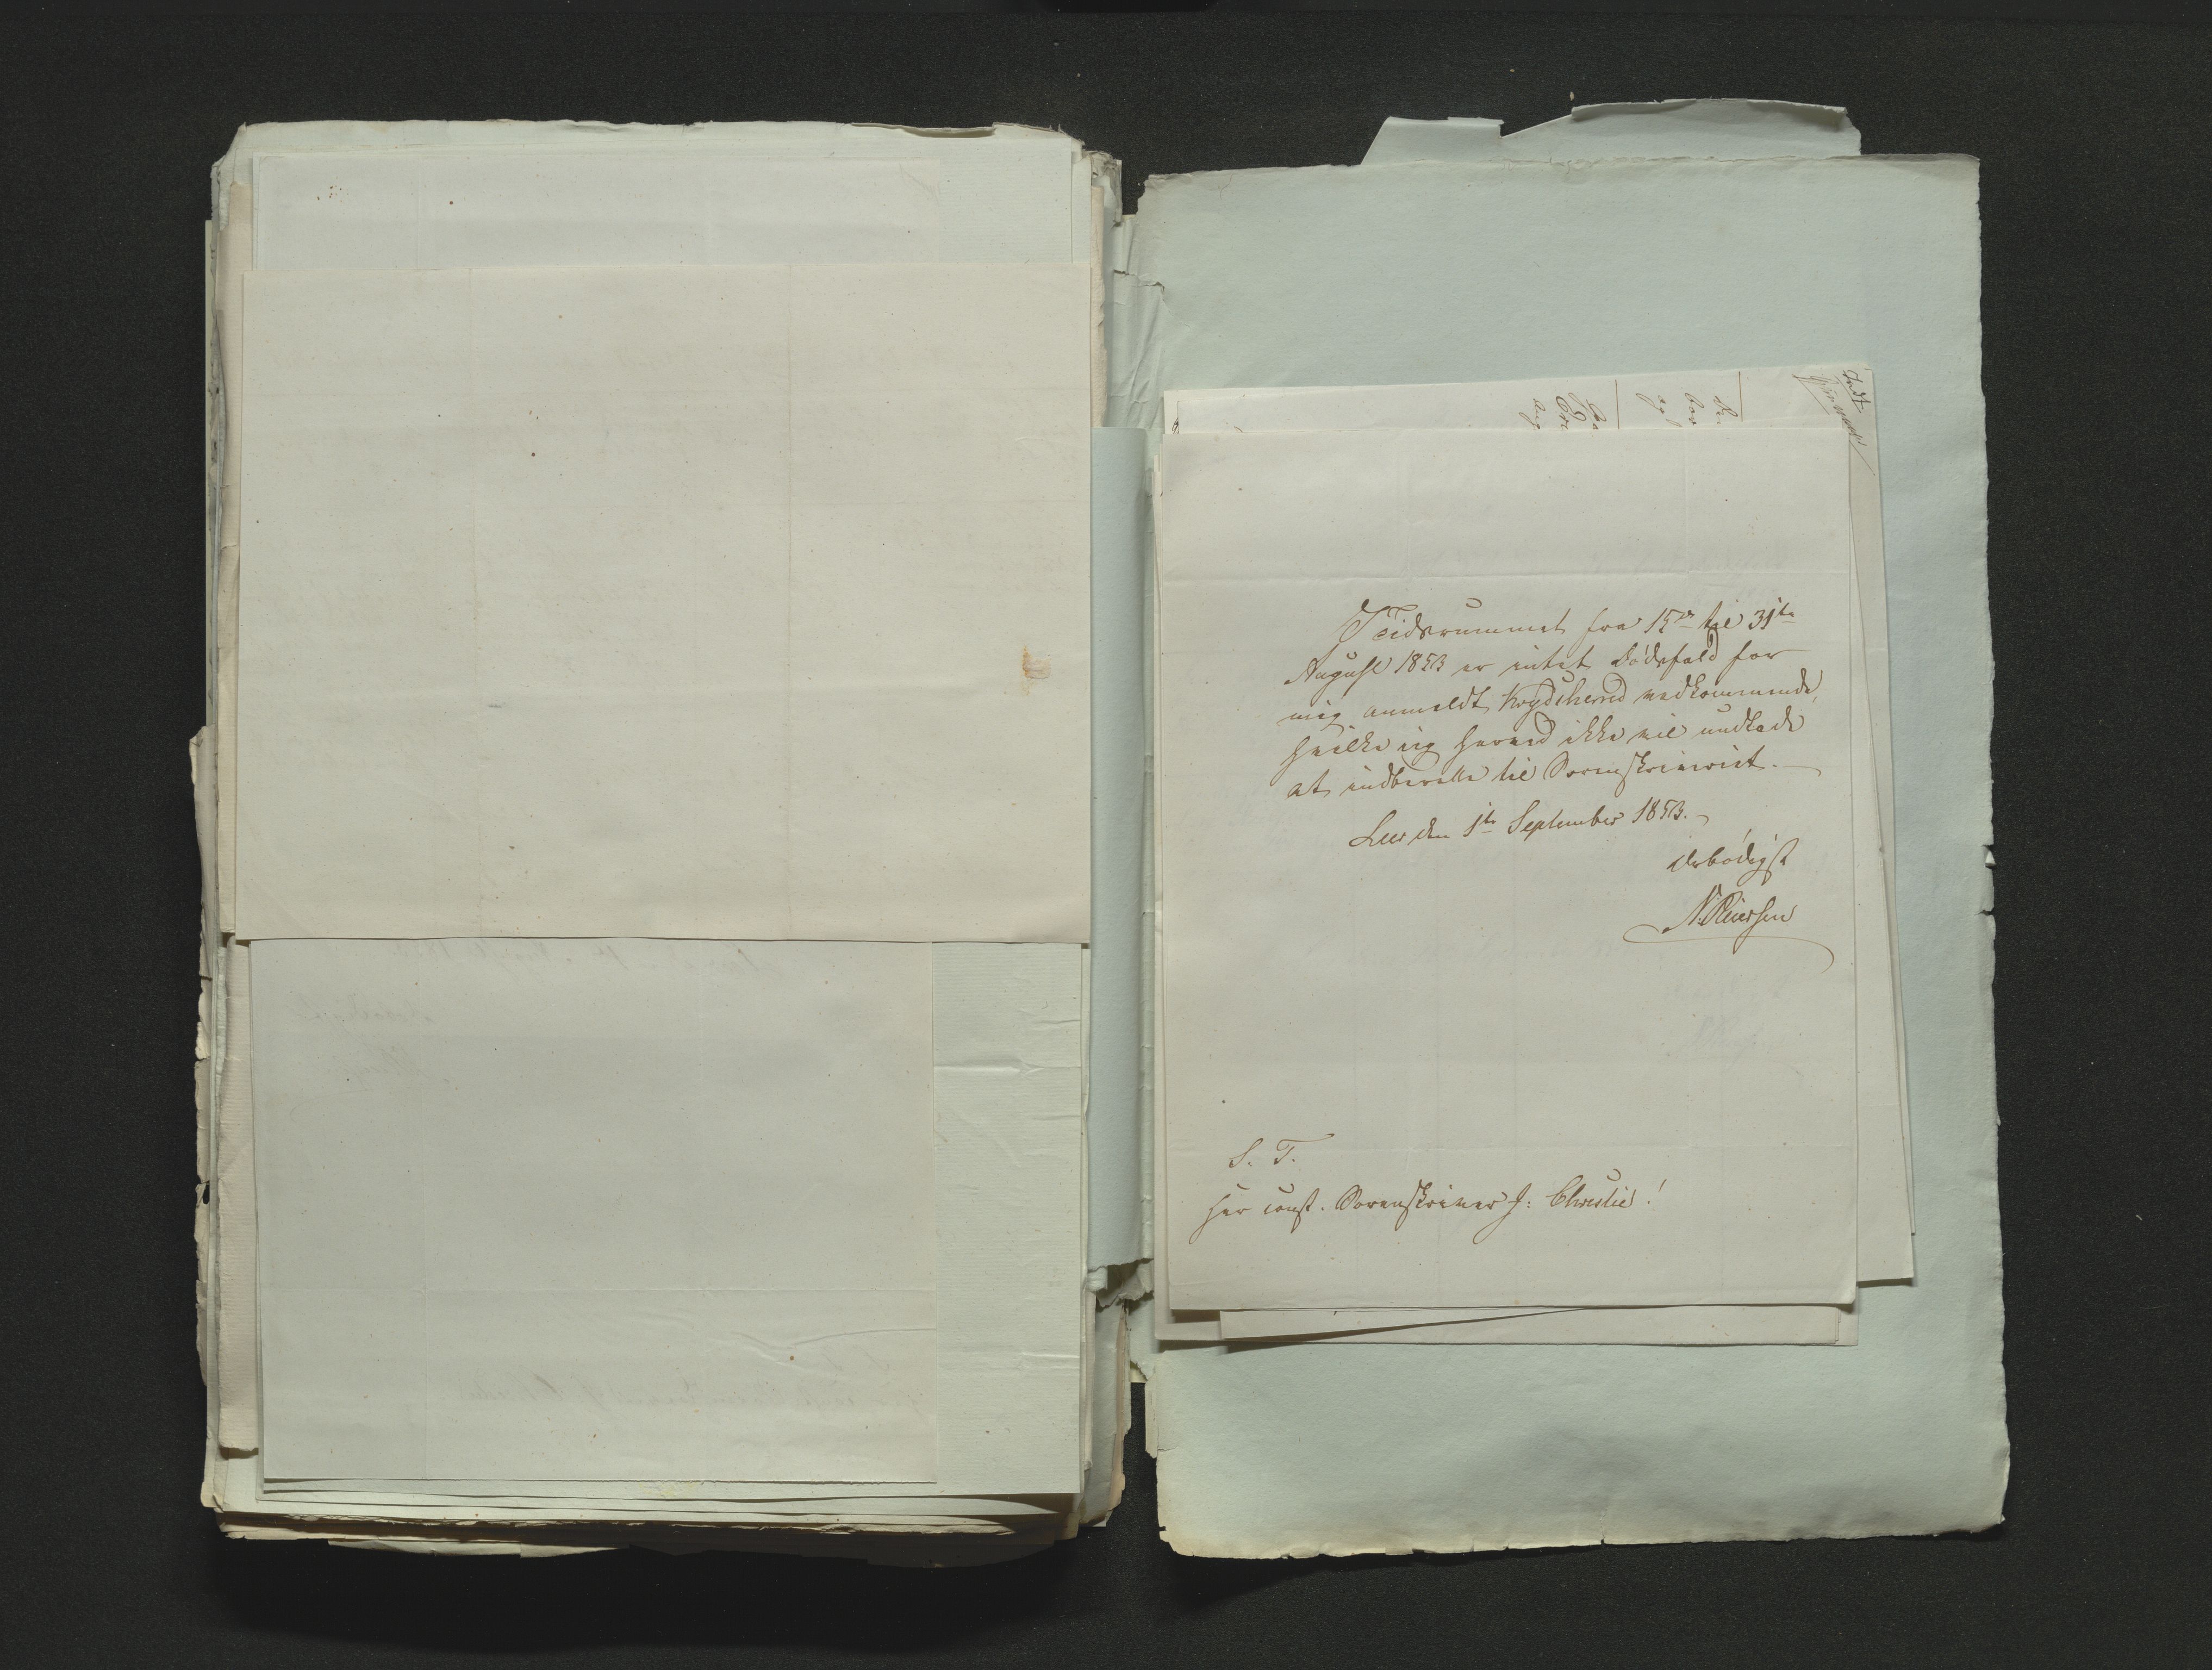 I Tidsrummet fra 15de til 31te
August 1853 er intet Dödsfald for
mig anmeldt Krydsherred vedkommende,
hvilke jeg herved ikke vil undlade
at indberette til Sorenskriveriet.
Leer den 1te September 1853.
Ærbödigst
N. Reiersen
S. T.
Herr const. Sorenskriver J: Christie!